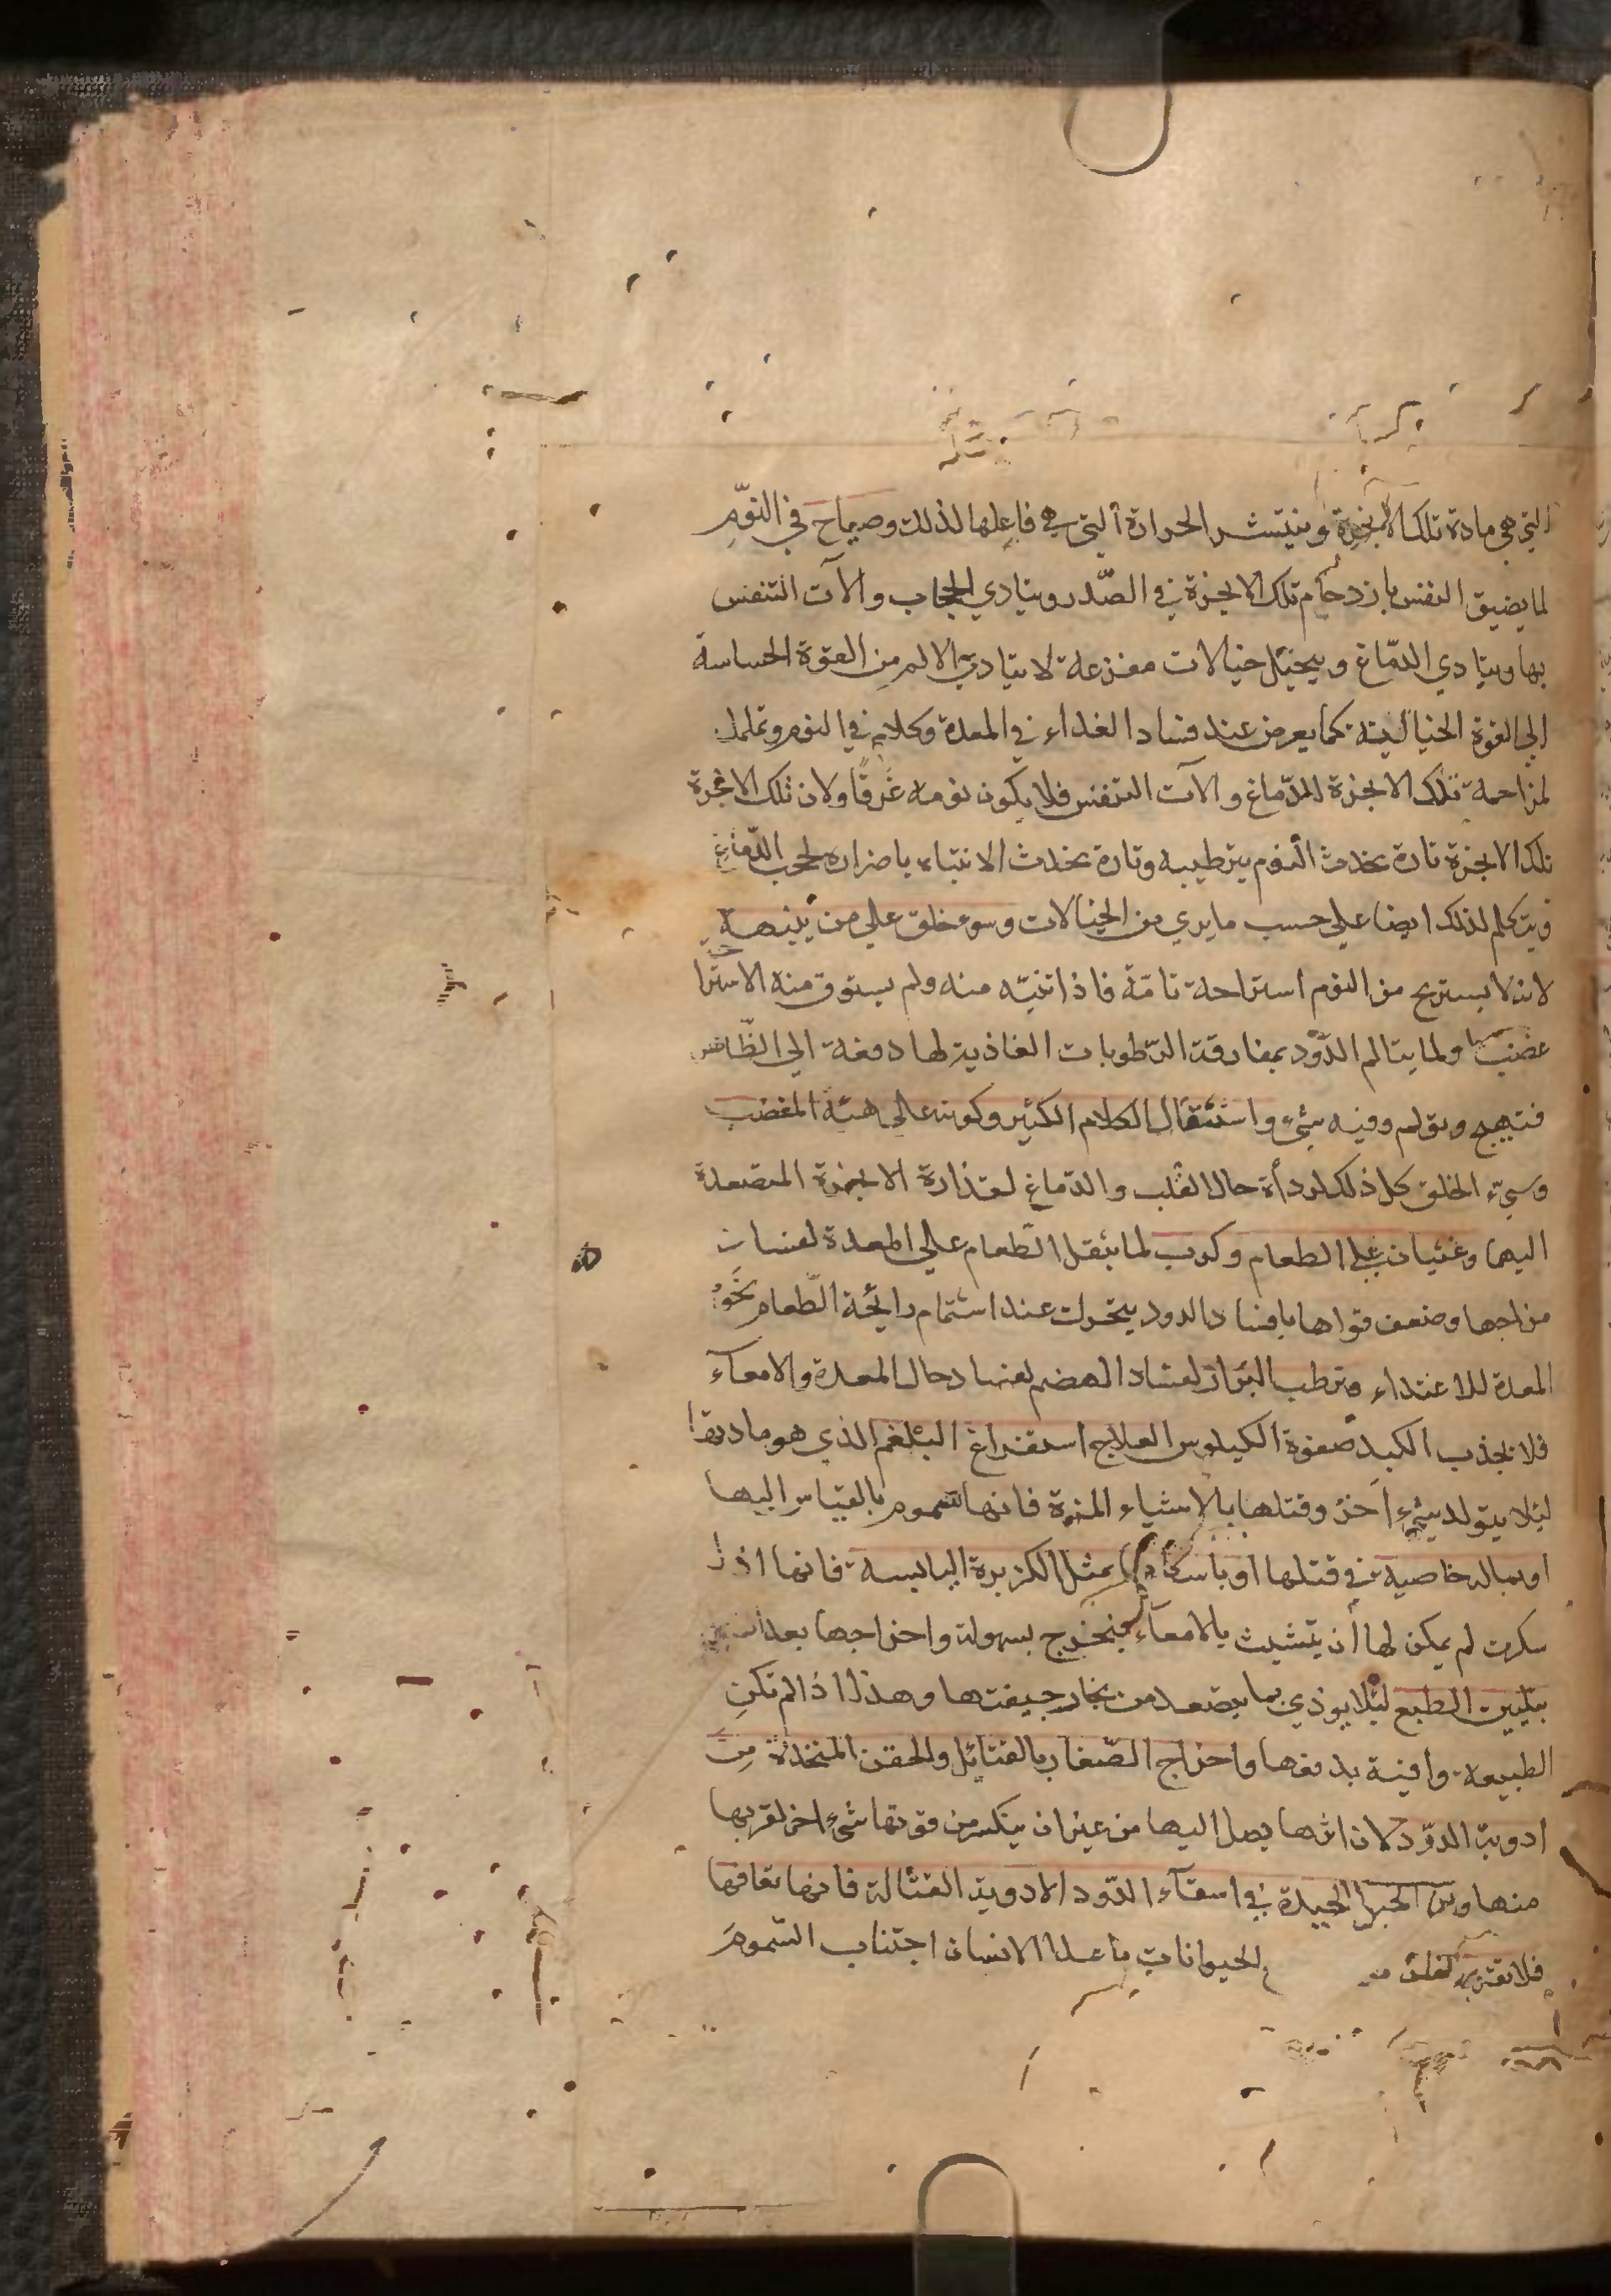 التي هي مادة تلك الابخرة وينتشر الحرارة التي هي فاعلها لذلك وصياح في النوم
لما يضيق النفس بازدحام تلك الابخرة في الصّدر ويتادي الحجاب والآت التنفس
بها ويتادي الدّماغ ويتخيّل خيالات مفزعة لا يتاديّ الالم من القوة الحساسة
الي القوة الخياليّة كما يعرض عند فساد الغذاء في المعدة وكلام في النوم وتململ
لمزاحمة تلك الابخرة للدّماغ والآت التنفس فلا يكون نومه غَرقًا ولان تلك الابخرة
تلك الابخرة تارة يحدث النوم بترطيبه وتارة يحدث الانتباه باضراره لحجب الدّماغ
فيتكلم لذلك ايضا علي حسب ما يري من الخيالات وسوء خلق علي من ينبهه
لانه لا يستريح من النوم استراحة تامّة فاذا انتبّه منه ولم يستوق منه الاسترا
غضب ولما يتالم الدّود بمفارقة الرّطوبات الغاذية لها دفعة الي الظّاهر
فتهيج وتولم وفيه شيء واستثقال الكلام الكثير وكونه علي هيئة المغضب
وسيّء الخلق كل ذلك لرداءة حال القلب والدّماغ لقذارة الابخرة المتصعدة
اليهما وغثيان علي الطعام وكرب لما يثقل الطعام علي المعدة لفساد
مزاجها وضعف قواها بافساد الدود يتحرك عند اشتمام رايحة الطّعام نحو
المعدة للاغتذاء وترطب البَراز لفساد الهضم لفساد حال المعدة والامعآء
فلا يجذب الكبد صفوة الكيلوس العلاج استفراغ البلغم الذي هو مادتها
ليلا يتولد شيء آخر وقتلها بالاشياء المرة فانها سموم بالقياس اليها
او بماله خاصية في قتلها او باسكارها بمثل الكزبرة اليابسة فانها اذا
سكرت لم يمكن لها أن يتشبث بالامعآء فيخرج بسهولة واخراجها بعد
بتليين الطبع ليلا يوذي بما يتصعد من بخار جيفتها وهذا اذا لم تكن
الطبيعة وافية بدفعها واخراج الصّغار بالفتائل والحقن المتخذة مِن
ادوية الدوّد لان اثرها يصل اليها من غير ان ينكسر من قوتها شيء اخر لقربها
منها ومن الحيل الجيدة في اسقآء الدّود الادوية القتّالة فانها تعافها
فلا تقربه الحيوانات ما عدا الانسان اجتناب السّموم